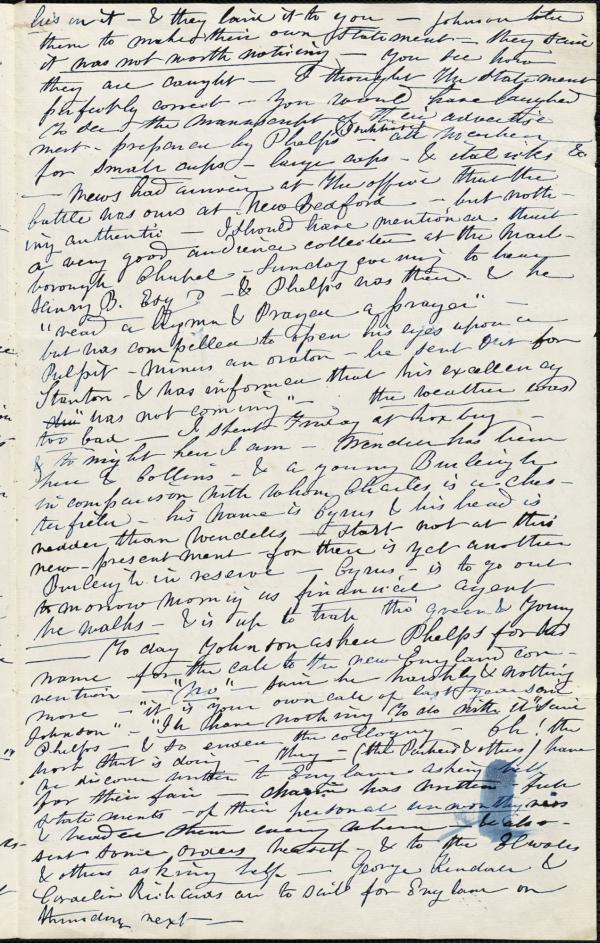 lies in it – & they laid it to you – Johnson told
them to make their own statement – they said
it was not worth noticing – You see how
they are caught – I thought the statement
perfectly correct – You would have laughed
to see the manuscript of their advertise
ment – prepared by Phelps – all
for small caps – large caps – & italicks &c
– News had arrived at the office that the
battle was ours at New Bedford – but noth-
ing authentic – I should have mentioned that
a very good audience collected at the Marl-
borough Chapel – Sunday evening to hear
Henry B. Esqr – & Phelps was there & he
"read a Hymn & Prayed a prayer"
but was compelled to open his eyes upon a
Pulpit – minus an orator – he sent out for
Stanton – & was informed that his excellency
"was not coming" – the weather was
too bad – I spent Friday at Roxbury –
& to night here I am – Wendell has been
here & Collins – & a young Burleigh
in comparison with whom Charles is a Ches-
terfield – his name is Cyrus & his head is
redder than Wendells – Start not at this
new presentment – for there is yet another
Burleigh in reserve – Cyrus – is to go out
tomorrow morning as financial agent
he walks – & is up to trap tho' green & young
– To day Johnson asked Phelps for his
name for the call to the new England con-
vention – "No" – said he harshly & nothing
more – "it is your own call of last year" said
Johnson – "I'll have nothing to do with it" said
Phelps – & so ended the colloquy – Oh! the
work that is doing – They – (the Parkers & others) have
we discover written to England asking help
for their fair – Maria has written full
statements – of their personal unworthiness
& headed them every where – & also –
sent some orders herself – & to the
& others asking help – George Kendall &
Coraelia Richards are to sail for England on
thursday next –